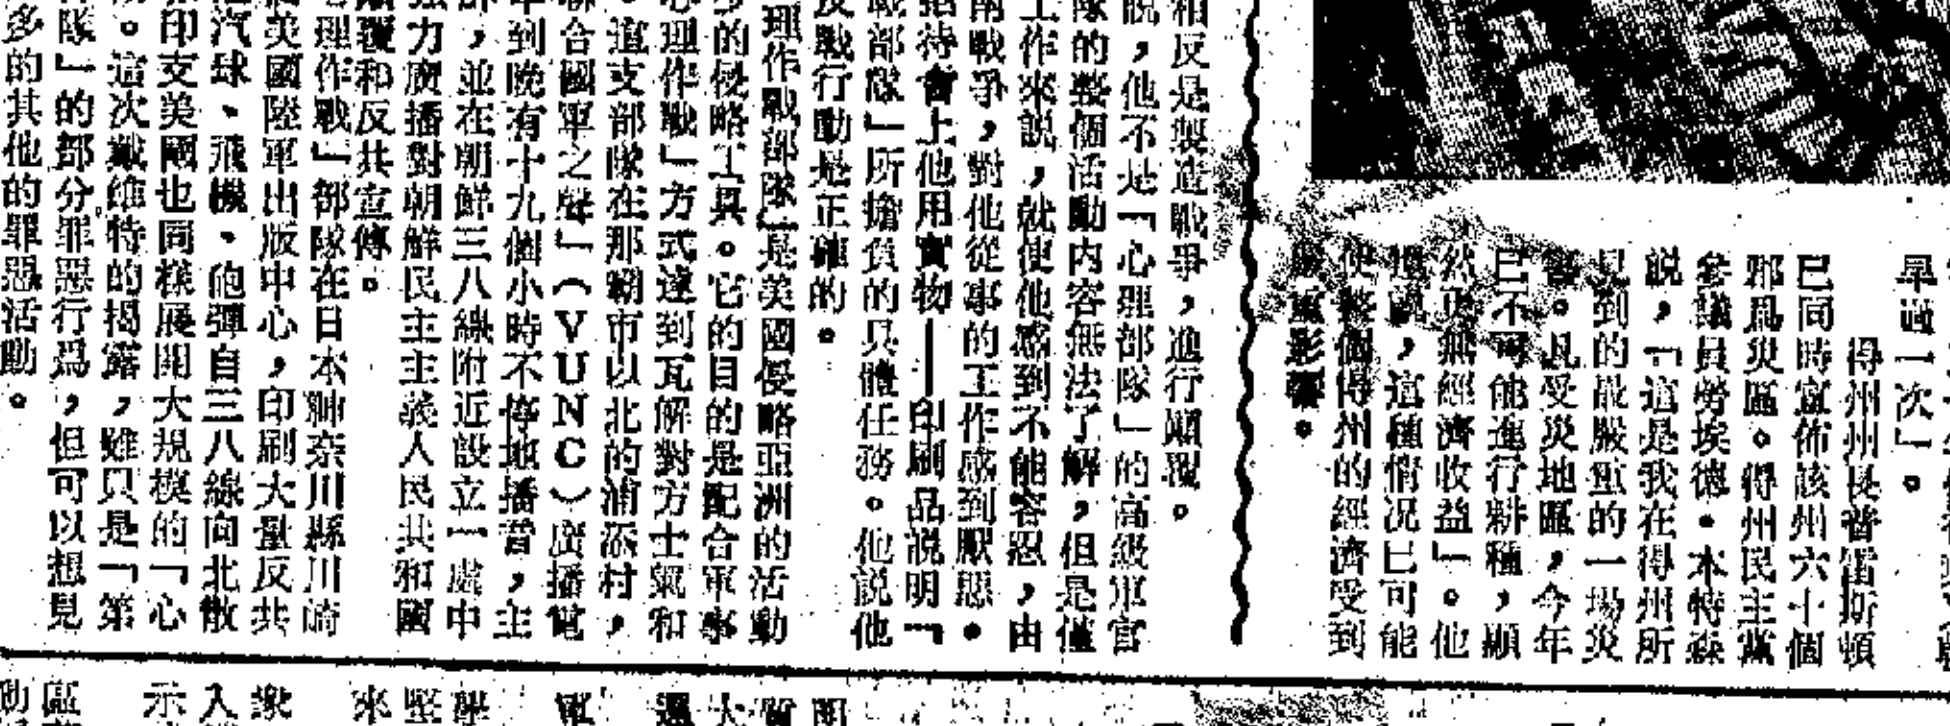 早過一次」。
得州州長普雷斯頓
已同時宣佈該州六十個
郡爲災區。得州民主黨
參議員勞埃德·本特森
説,「這是我在得州所
見到的最嚴重的一場災
害。凡受災地區,今年
已不可能進行耕種,顯
然更無經濟收益」。他
還說,這種情况已可能
使整個得州的經濟受到
嚴重影響。
相反是製造戰爭,進行顛覆。
説,他不是「心理部隊」的高級軍官
隊的整個活動内容無法了解,但是僅
工作來説,就使他感到不能容忍,由
兩戰爭,對他從事的工作感到厭惡。
招待會上他用實物——印刷品説明「
戰部隊」所擔負的具體任務。他説他
反戰行動是正確的。
理作戰部隊」是美國侵略亞洲的活動
的侵略工具。它的目的是配合軍事
心理作戰」方式達到瓦解對方士氣和
。這支部隊在那霸市以北的浦添村,
聯合國軍之聲」(VUNC)廣播電
到晚有十九個小時不停地播音,主
鮮,並在朝鮮三八線附近設立一處中
强力廣播對朝鮮民主主義人民共和國
顛覆和反共宣傳。
理作戰」部隊在日本神奈川縣川崎
美國陸軍出版中心,印刷大量反共
汽球、飛機、砲彈自三八線向北散
印支美國也同樣展開大規模的「心
。這次戴維特的揭露,雖只是「第
隊」的部分罪惡行爲,但可以想見
多的其他的罪惡活動。